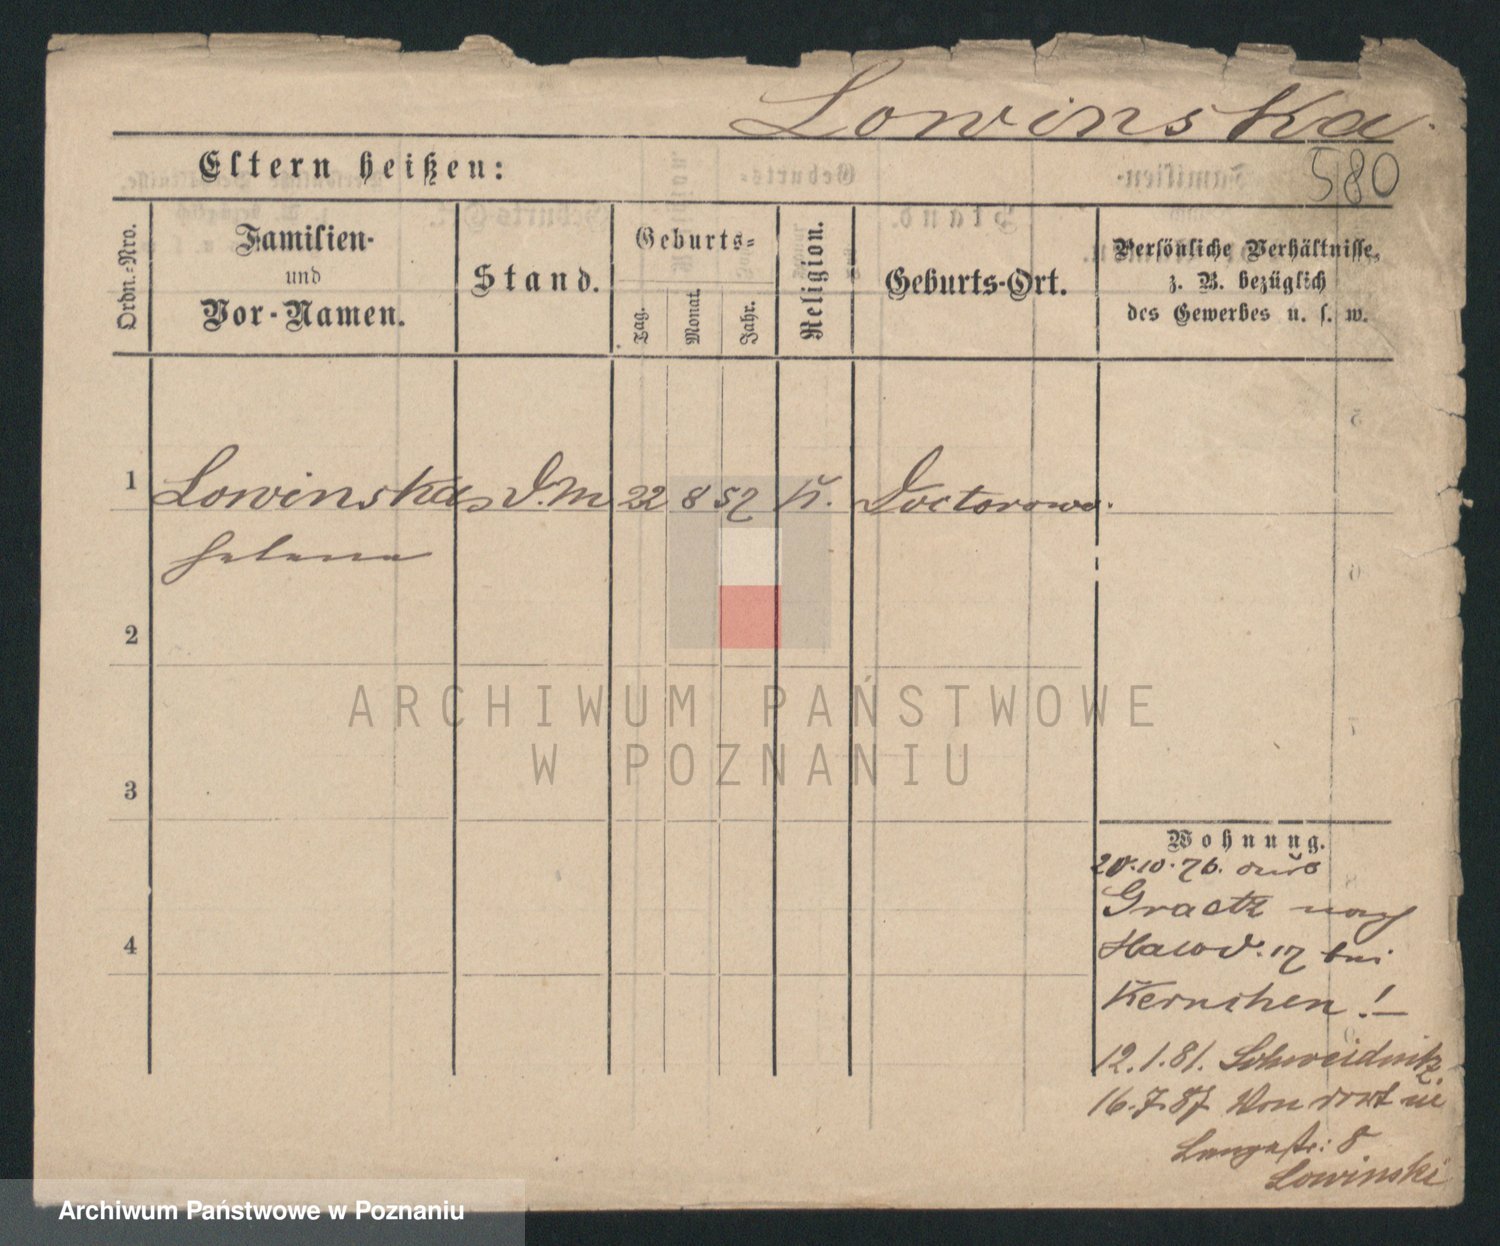 Lowinska.
580
Eltern heißen:
Ordn.-Nro.
Familien-
und
Vor-Namen.
Stand.
Geburts-
Tag.
Monat.
Jahr.
Religion.
Geburts-Ort.
Persönliche Verhältnisse,
z. B. bezüglich
des Gewerbes u. s. w.
1 Lowinska D.M 22 8 57 K. Doctorowo.
Helena
2
3
4
Wohnung.
20.10.76. aus
Graetz nach
Halbd. 17 bei
Kernchen!
12.1.81. Schweidnitz
16.7.87 Von dort in
Langestr: 8
Lowinski
ARCHIWUM PAŃSTWOWE
W POZNANIU
Archiwum Państwowe w Poznaniu